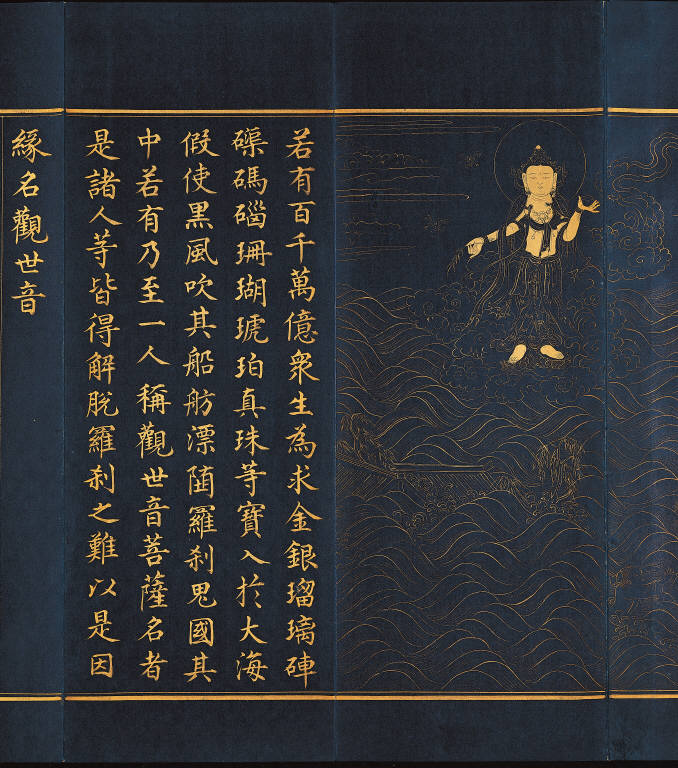 若有百千萬億衆生為求金銀瑠璃硨
磲碼碯珊瑚琥珀真珠等寶入於大海
假使黒風吹其船舫漂墮羅刹鬼國其
中若有乃至一人稱觀世音菩薩名者
是諸人等皆得解脫羅刹之難以是因
緣名觀世音